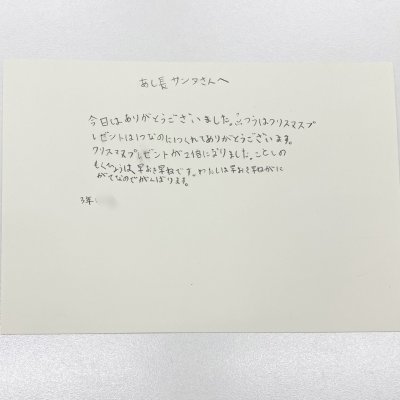 あし長サンタさんへ
今日はありがとうございました。ふつうはクリスマスプ
レゼントは1つなのに1つくれてありがとうございます。
クリスマスプレゼントが2倍になりました。ことしの
もくひょうは、早おき早ねです。わたしは早おき早ねがに
がてなのでがんばります。
3年